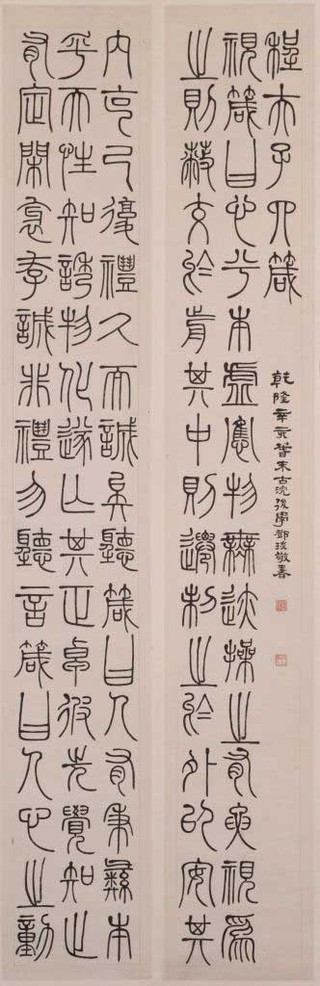 程夫子四箴
視箴曰心兮本虛應物無迹操之有要視為
之則蔽交於前其中則遷制之於外以安其
内克己復禮久而誠矣聽箴曰人有秉彝本
乎天性知誘物化遂亡其正卓彼先覺知止
有定閑邪存誠非禮勿聽言箴曰人心之動
乾隆辛亥末古浣後學鄧琰敬書